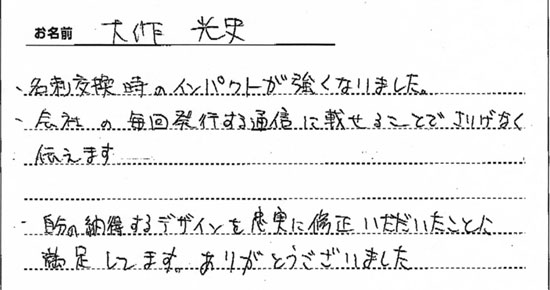 お名前 大作 光史
・名刺交換時のインパクトが強くなりました。
・会社の毎回発行する通信に載せることでさりげなく
伝えます
・自分の納得するデザインを忠実に修正いただいたことに
満足してます。ありがとうございました